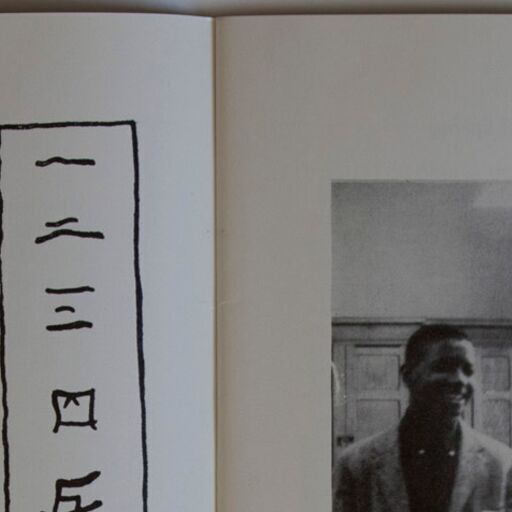 一
二
三
四